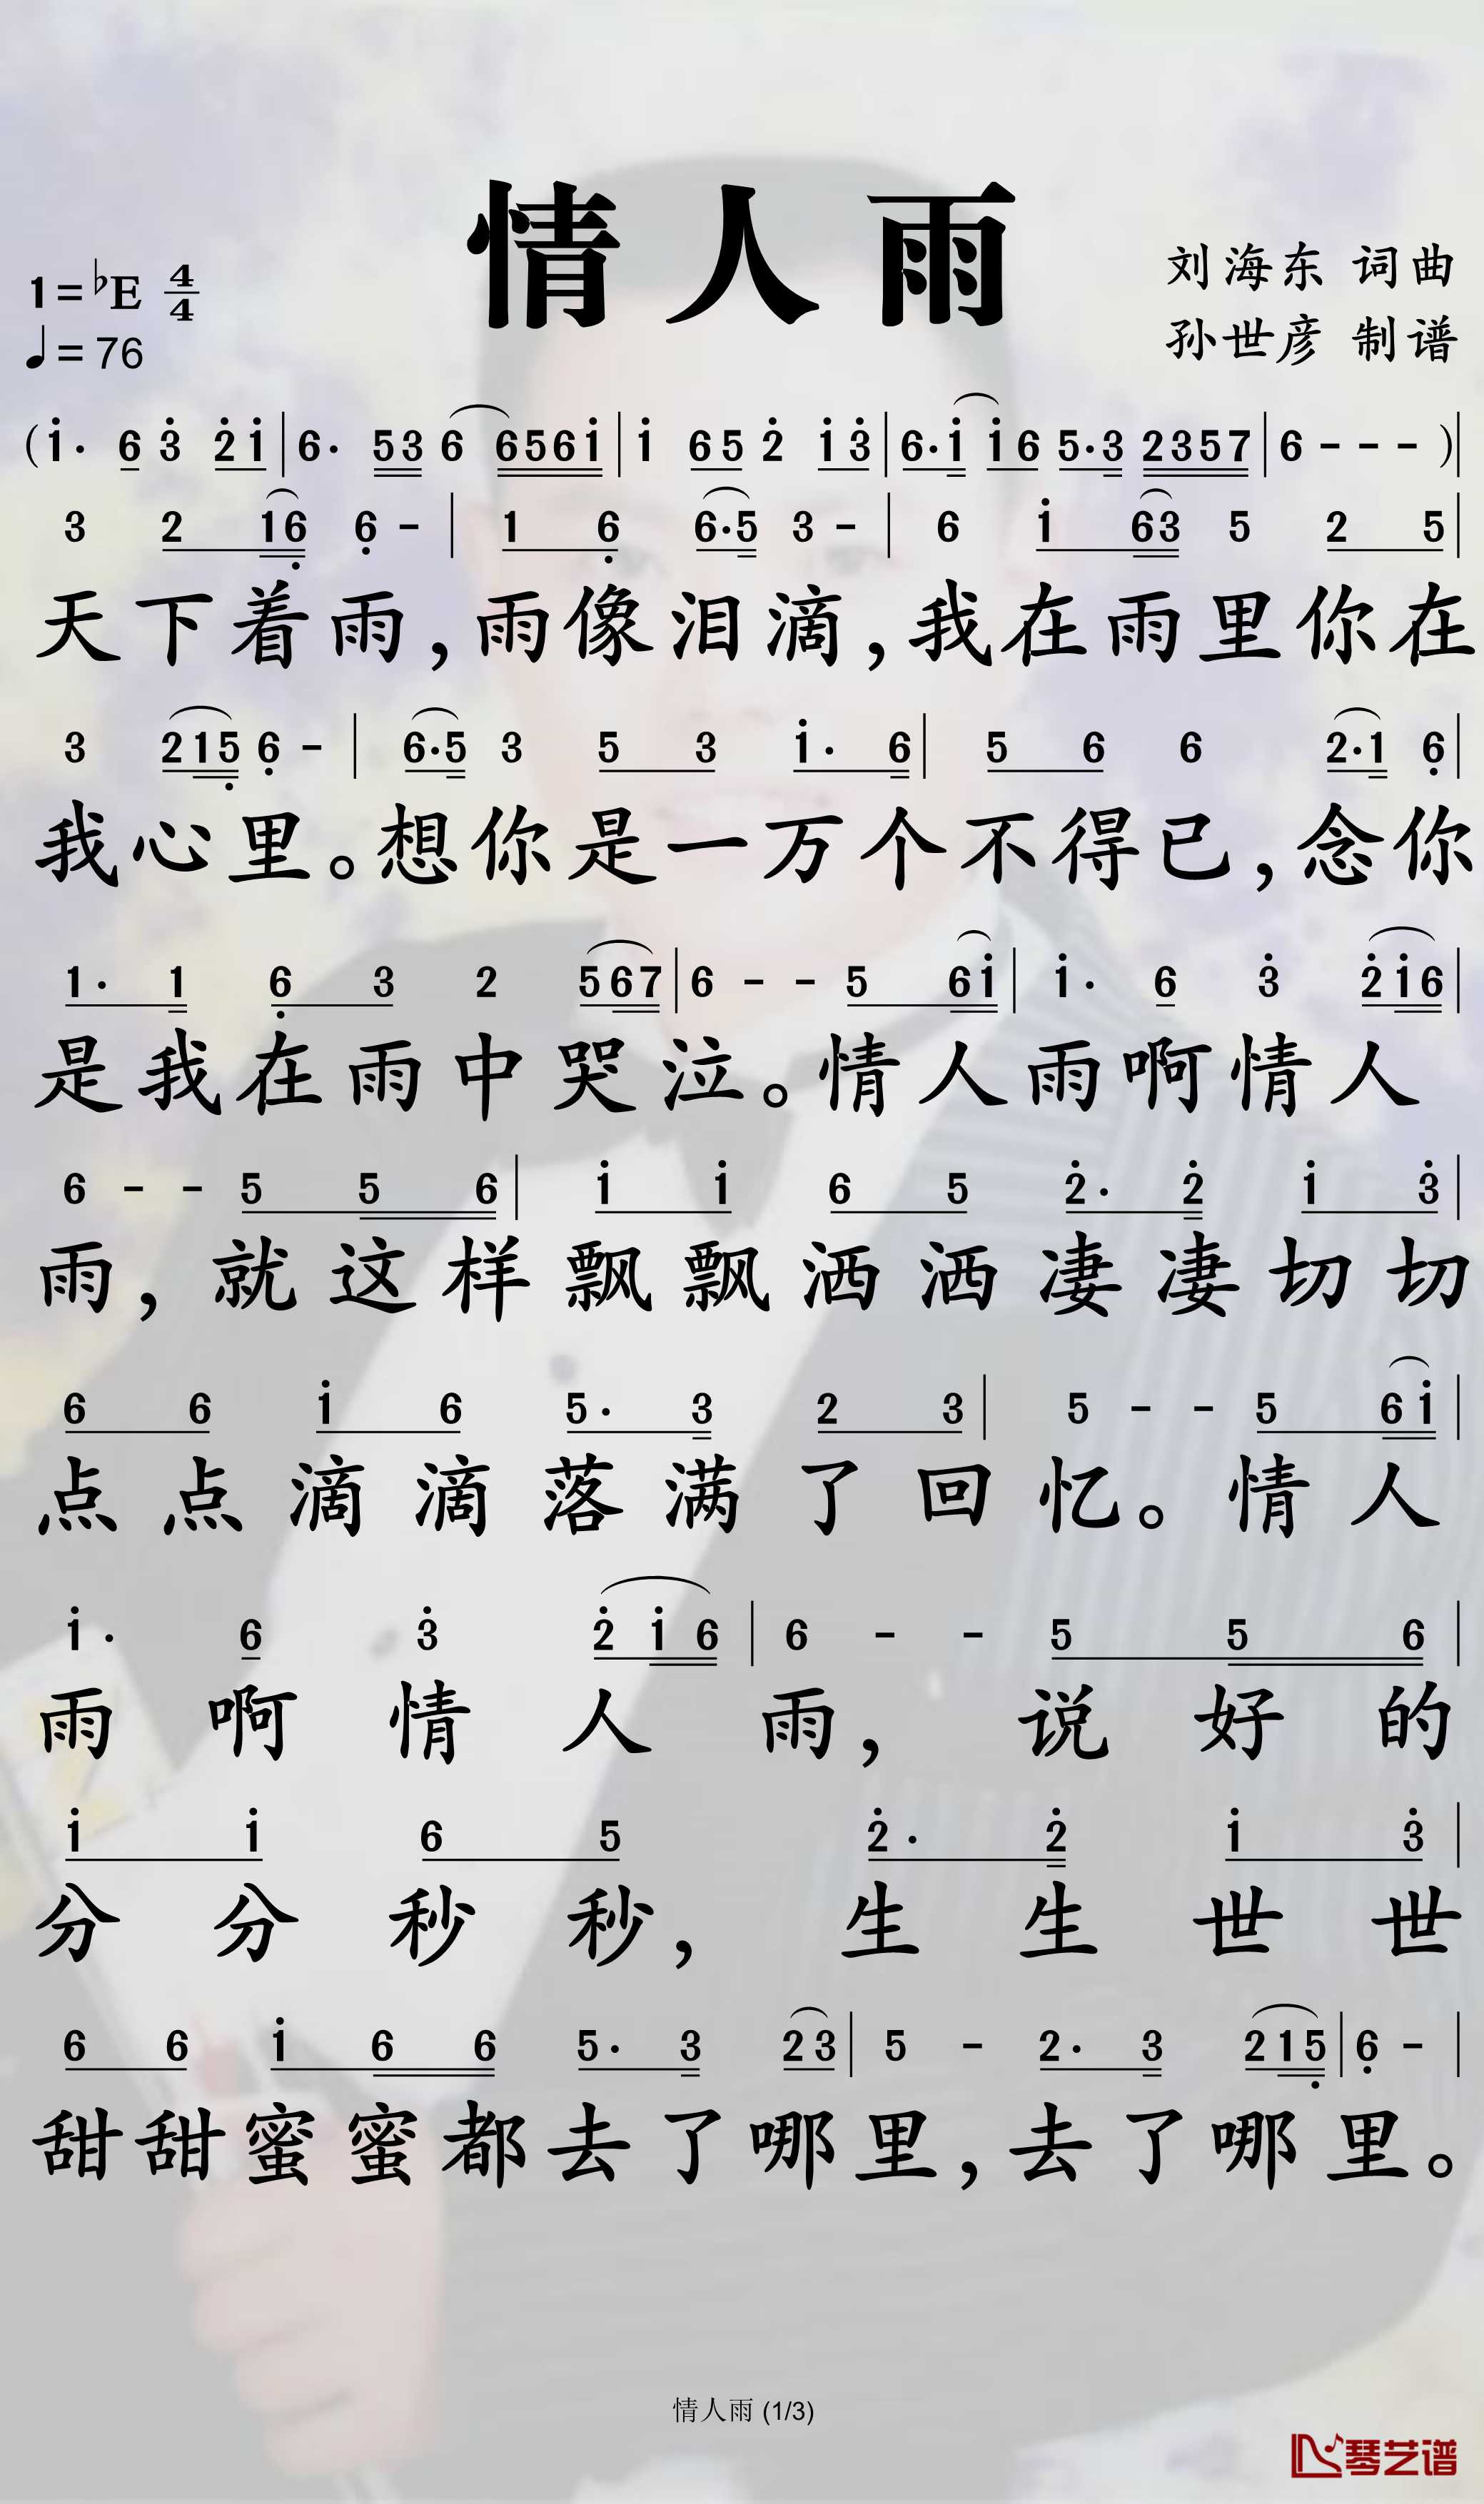 情人雨
1=♭E 4/4
刘海东 词曲
♩=76
孙世彦 制谱
(i̇· 6 3̇ 2̇ i̇ | 6· 5 3 6 6 5 6 i̇ | i̇ 6 5 2̇ i̇ 3̇ | 6· i̇ i̇ 6 5· 3 2 3 5 7 | 6 - - - )|
3 2 1 6̣ 6̣ - | 1 6̣ 6· 5 3 - | 6 i̇ 6 3 5 2 5 |
天下着雨,雨像泪滴,我在雨里你在
3 2 1 5̣ 6̣ - | 6· 5 3 5 3 i̇· 6 | 5 6 6 2· 1 6̣ |
我心里。想你是一万个不得已,念你
1· 1 6̣ 3 2 5 6 7 | 6 - - 5 6 i̇ | i̇· 6 3̇ 2̇ i̇ 6 |
是我在雨中哭泣。情人雨啊情人
6 - - 5 5 6 | i̇ i̇ 6 5 2̇· 2̇ i̇ 3̇ |
雨,就这样飘飘洒洒凄凄切切
6 6 i̇ 6 5· 3 2 3 | 5 - - 5 6 i̇ |
点点滴滴落满了回忆。情人
i̇· 6 3̇ 2̇ i̇ 6 | 6 - - 5 5 6 |
雨啊情人雨,说好的
i̇ i̇ 6 5 2̇· 2̇ i̇ 3̇ |
分分秒秒,生生世世
6 6 i̇ 6 6 5· 3 2 3 | 5 - 2· 3 2 1 5̣ | 6̣ - |
甜甜蜜蜜都去了哪里,去了哪里。
情人雨 (1/3)
琴艺谱